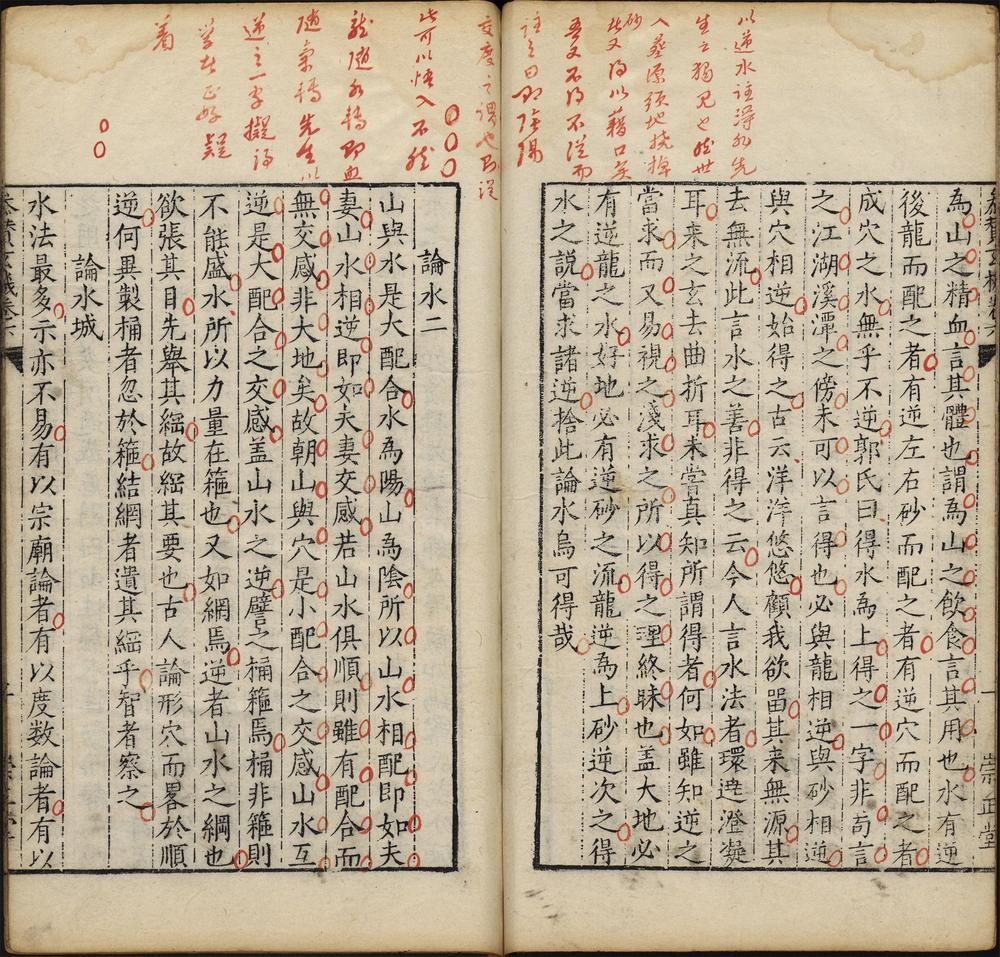 以逆水註得水先
生之獨見也然世
人葬源頭地撓掉
砂
此又得以藉口矣
吾又不得不從而
註之曰即陰陽
交度之謂也即從
此可以悟入不然
龍隨水轉即血
隨氣轉先生以
逆之一字擬議
學者正好疑
着
為山之精血言其體也謂為山之飲食言其用也水有逆
後龍而配之者有逆左右砂而配之者有逆穴而配之者
成穴之水無乎不逆郭氏曰得水為上得之一字非苟言
之江湖溪潭之傍未可以言得也必與龍相逆與砂相逆
與穴相逆始得之古云洋洋悠悠顧我欲畱其来無源其
去無流此言水之善非得之云今人言水法者環遶澄凝
耳来之玄去曲折耳未嘗真知所謂得者何如雖知逆之
當求而又易視之淺求之所以得之理終昧也盖大地必
有逆龍之水好地必有逆砂之流龍逆為上砂逆次之得
水之說當求諸逆捨此論水烏可得哉
崇正堂
論水二
山與水是大配合水為陽山為陰所以山水相配即如夫
妻山水相逆即如夫妻交感若山水俱順則雖有配合而
無交感非大地矣故朝山與穴是小配合之交感山水互
逆是大配合之交感盖山水之逆譬之桶箍焉桶非箍則
不能盛水所以力量在箍也又如網焉逆者山水之綱也
欲張其目先舉其綱故綱其要也古人論形穴而畧於順
逆何異製桶者忽於箍結網者遺其綱乎智者察之
論水城
水法最多示亦不易有以宗廟論者有以度数論者有以